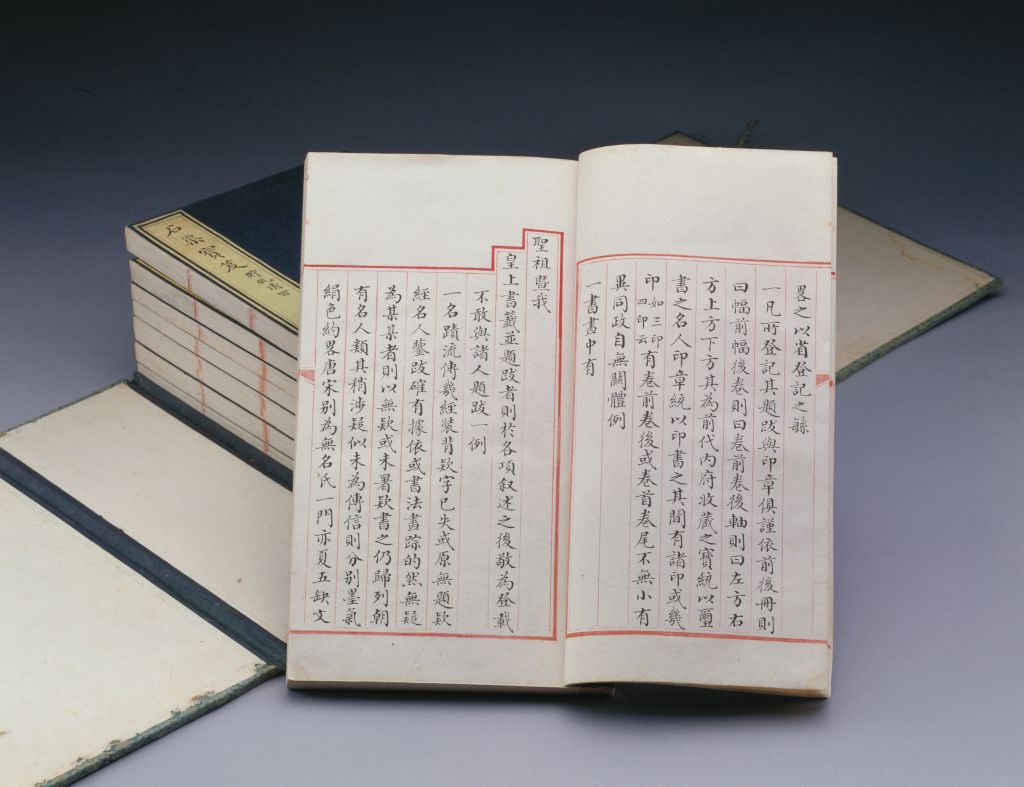 畧之以省登記之緐
一凡所登記其題跋與印章俱謹依前後冊則
曰幅前幅後卷則曰卷前卷後軸則曰左方右
方上方下方其為前代内府收藏之寶統以璽
書之名人印章統以印書之其間有諸印或幾
印如三印四印云有卷前卷後或卷首卷尾不無小有
異同政自無關體例
一書畫中有
聖祖暨我
皇上書籤並題跋者則於各項叙述之後敬為登載
不敢與諸人題跋一例
一名蹟流傳幾經裝背欵字已失或原無題欵
經名人鑒跋確有據依或書法畫踪的然無疑
為某某者則以無欵或未署欵書之仍歸列朝
有名人類其稍涉疑似未為傳信則分别墨氣
絹色約畧唐宋别為無名氏一門亦夏五缺文
石渠寶笈 貯乾清宮